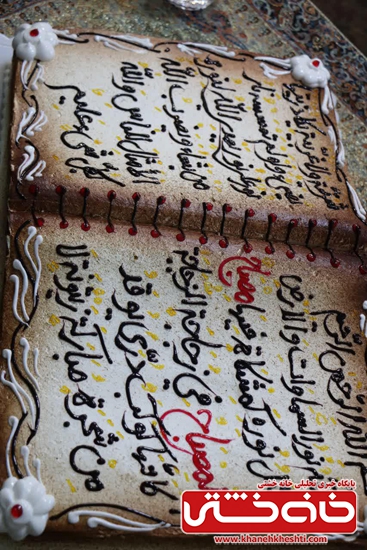 الله الرحمن الرحیم
نور السموات والارض
نوره کمشکاة فیها مصباح
المصباح فی زجاجة الزجاجة
کانها کوکب دری یوقد
من شجرة مبارکة زیتونة لا
شرقیة ولا غربیة یکاد زیتها
یضیء ولو لم تمسسه نار
نور علی نور یهدی الله لنوره
من یشاء ویضرب الله
الامثال للناس والله
بکل شیء علیم
پایگاه خبری تحلیلی خانه خشتی
خانه خشتی
www.khanehkheshti.com